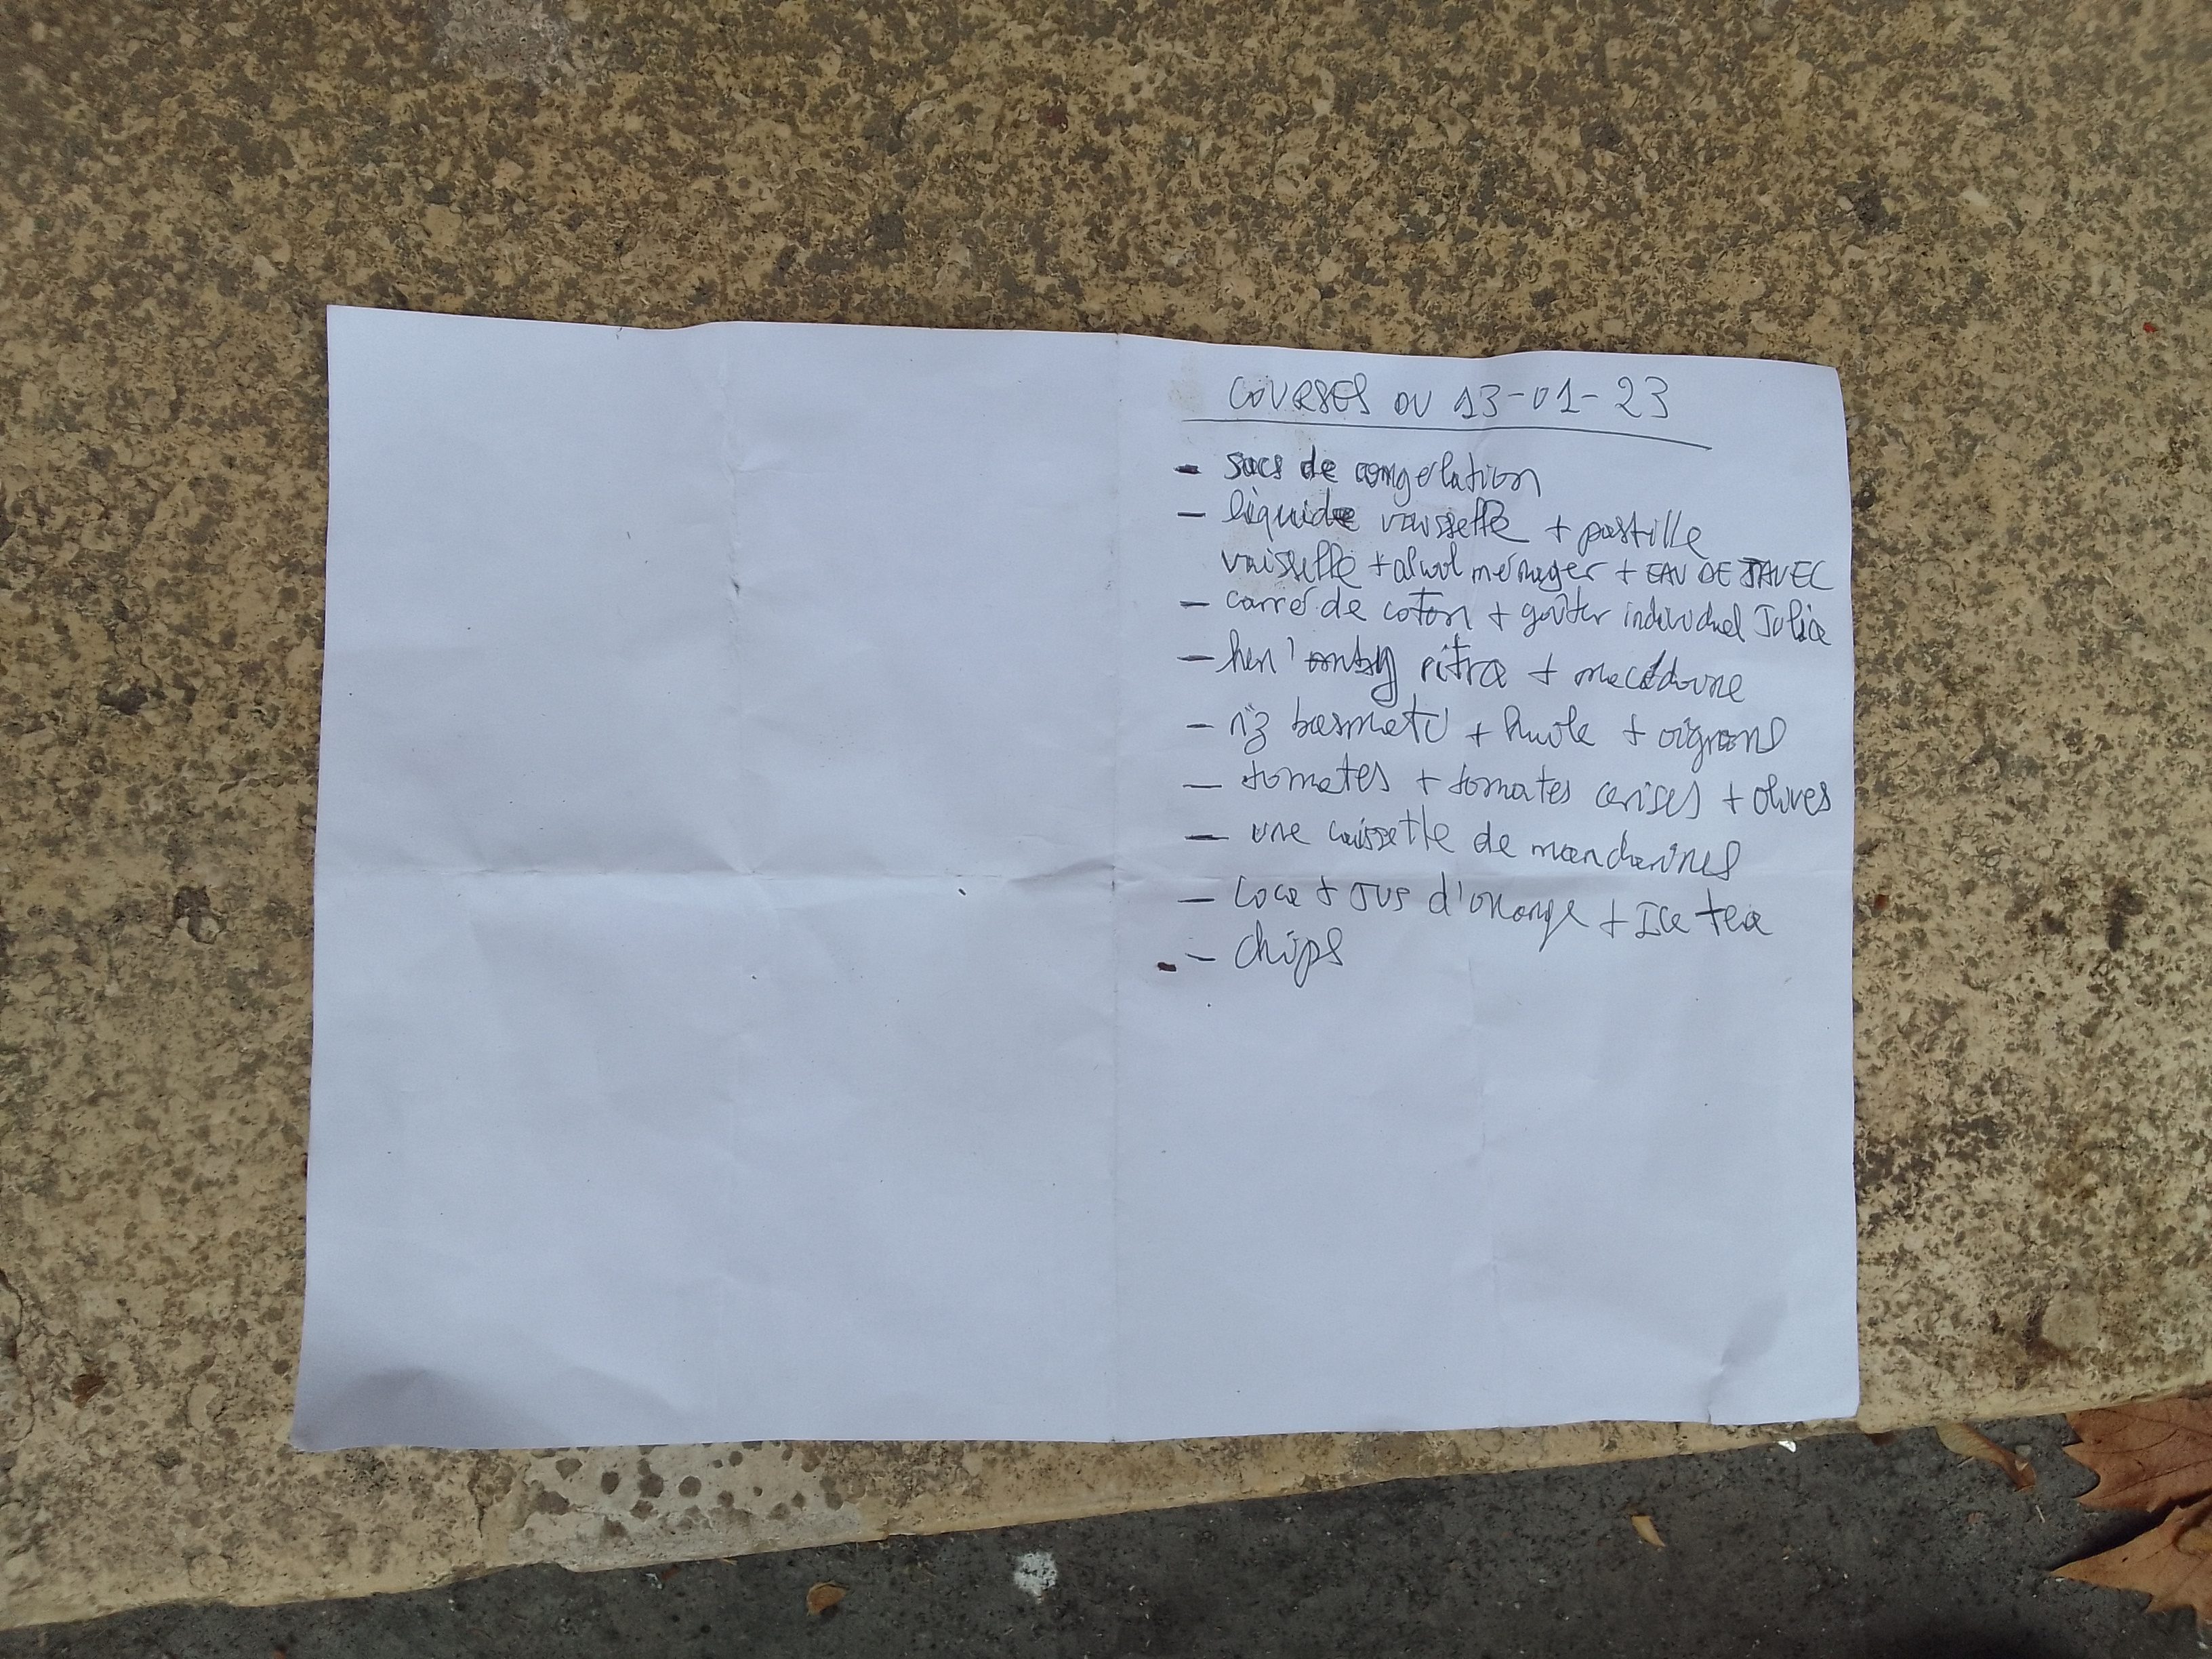 COURSES DU 13-01-23
- sacs de congelation
- liquide vaisselle + pastille
vaisselle + alcool ménager + EAU DE JAVEC
- carré de coton + goûter individuel Julia
- + macédoine
- riz basmati + huile + oignons
- tomates + tomates cerises + olives
- une caissette de mandarines
- coca + JUS d'orange + Ice tea
- chips